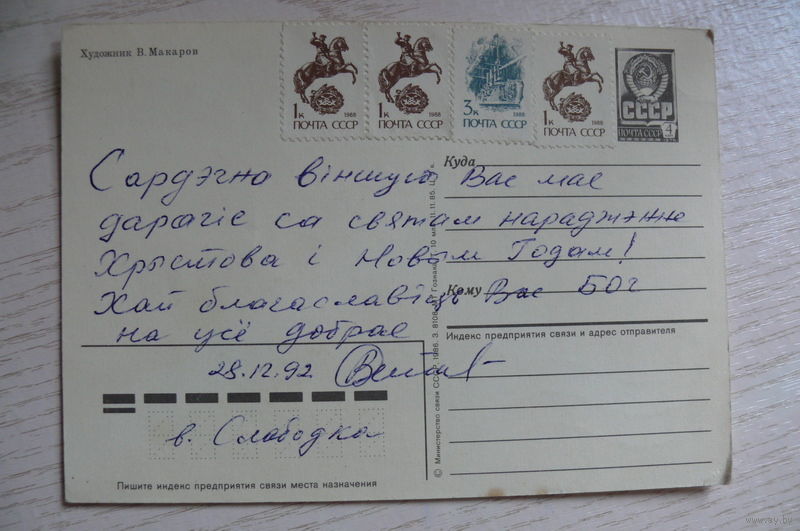 Художник В. Макаров
1к 1988
ПОЧТА СССР
1к 1988
ПОЧТА СССР
3к 1988
ПОЧТА СССР
1к 1988
ПОЧТА СССР
СССР
ПОЧТА СССР 4
Куда
Сардэчна віншую Вас мае
дарагіе са святам нараджэння
Хрыстова і Новым Годам!
Кому
Хай благаславіць Вас Бог
на усё добрае
Индекс предприятия связи и адрес отправителя
28.12.92
в. Слободка
Пишите индекс предприятия связи места назначения
© Министерство связи СССР, 1986. З. 8108
www.ay.by